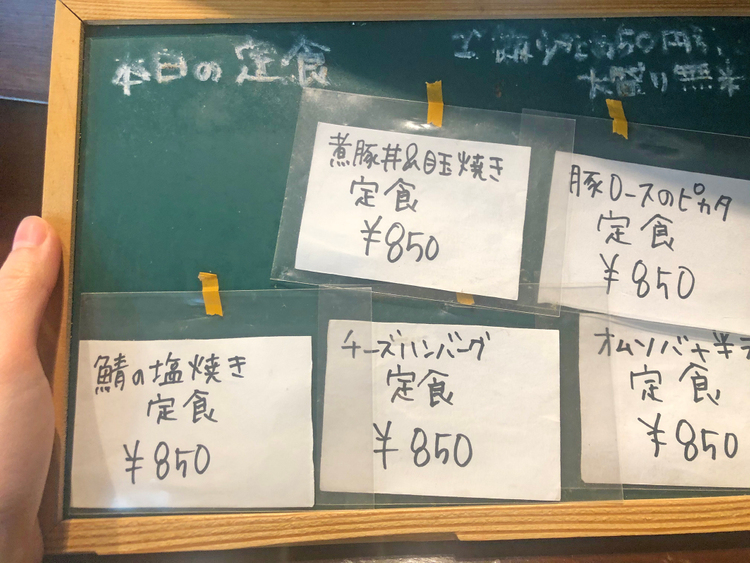 本日の定食
50円
大盛り無料
煮豚丼&目玉焼き
定食
¥850
豚ロースのピカタ
定食
¥850
鯖の塩焼き
定食
¥850
チーズハンバーグ
定食
¥850
オムソバ+半ラ
定食
¥850